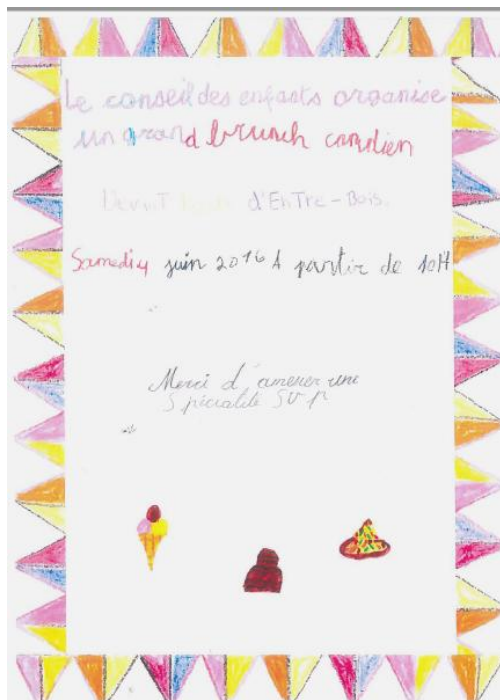 Le conseil des enfants organise
un grand brunch canadien
Devant d'EnTre-Bois.
Samedi 4 juin 2016 A partir de 10H
Merci d'amener une
Spécialité SVP